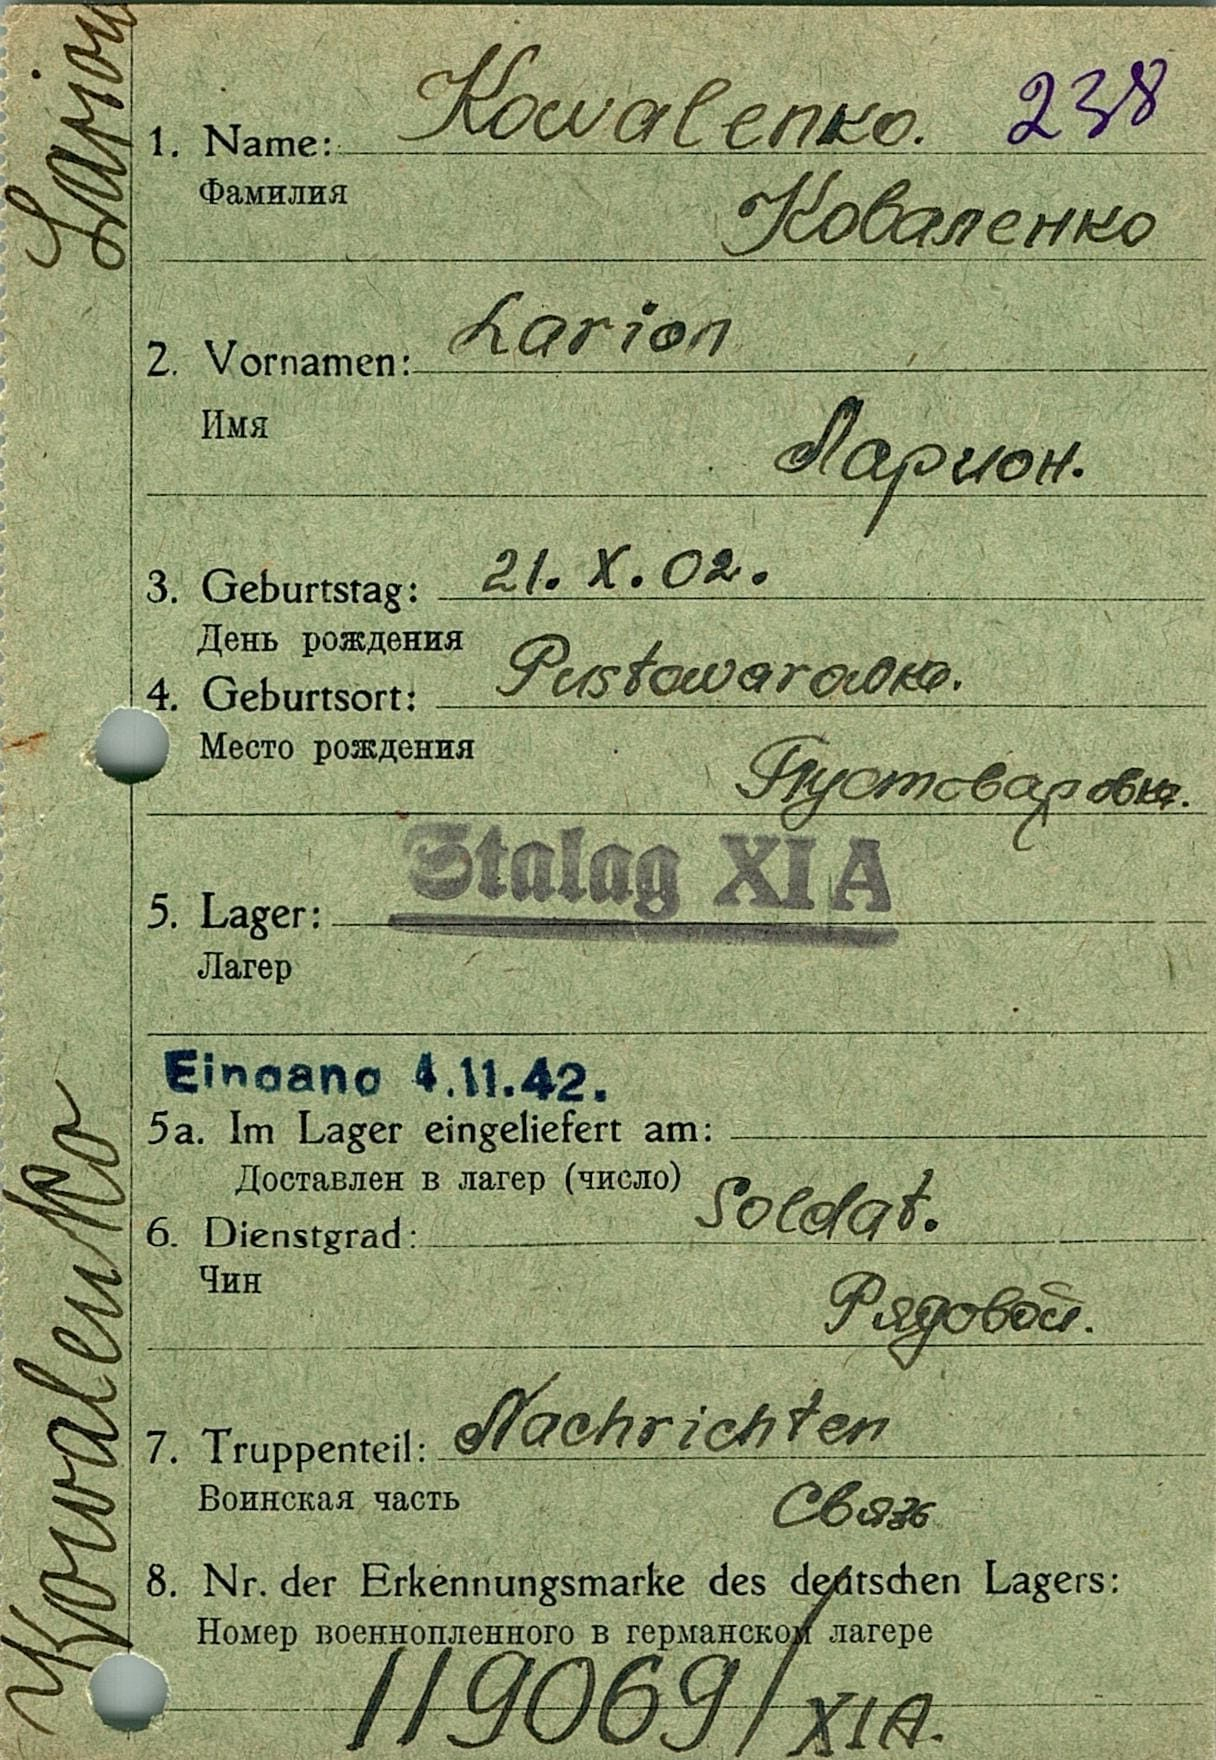 Kowalenko. 238
1. Name:
Фамилия
Коваленко
Larion
2. Vornamen:
Имя
Ларион.
3. Geburtstag: 21. X. 02.
День рождения
4. Geburtsort: Pustowarowka.
Место рождения
Пустоваровка.
Stalag XI A
5. Lager:
Лагер
Eingang 4.11.42.
5a. Im Lager eingeliefert am:
Доставлен в лагер (число)
6. Dienstgrad: Soldat.
Чин
Рядовой.
7. Truppenteil: Nachrichten
Воинская часть
Связь
8. Nr. der Erkennungsmarke des deutschen Lagers:
Номер военнопленного в германском лагере
119069/XIA.
Kowalenko Larion